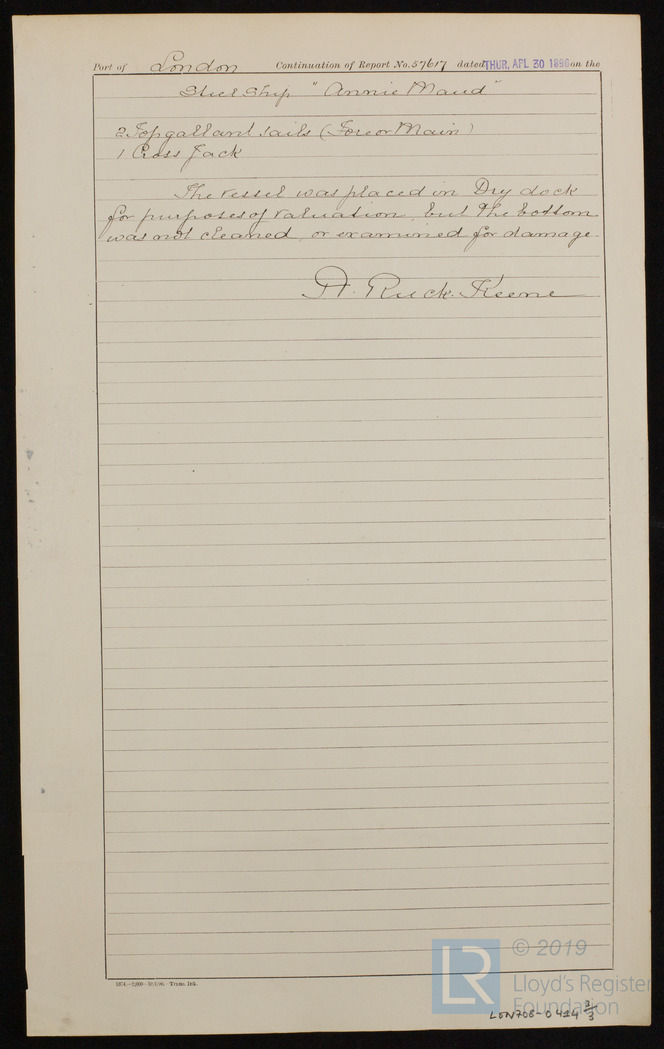 Port of London Continuation of Report No. 57617 dated THUR. APL 30 1896 on the
Steel Ship "Annie Maud"
2 Topgallant sails (Fore or Main)
1 Cross Jack
The vessel was placed in Dry dock
for purposes of valuation, but the bottom
was not cleaned, or examined for damage.
A. Ruck. Keene
© 2019
Lloyd's Register
Foundation
LR
LON708-0414 3/3